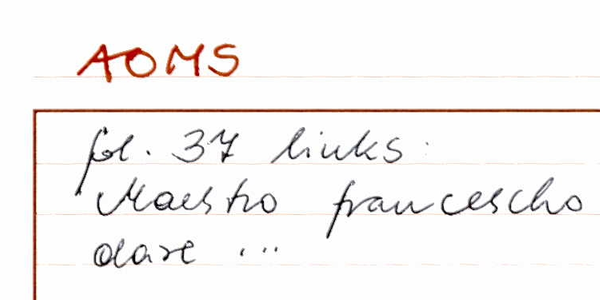 AOMS
fol. 37 links:
Maestro francescho
dare ...